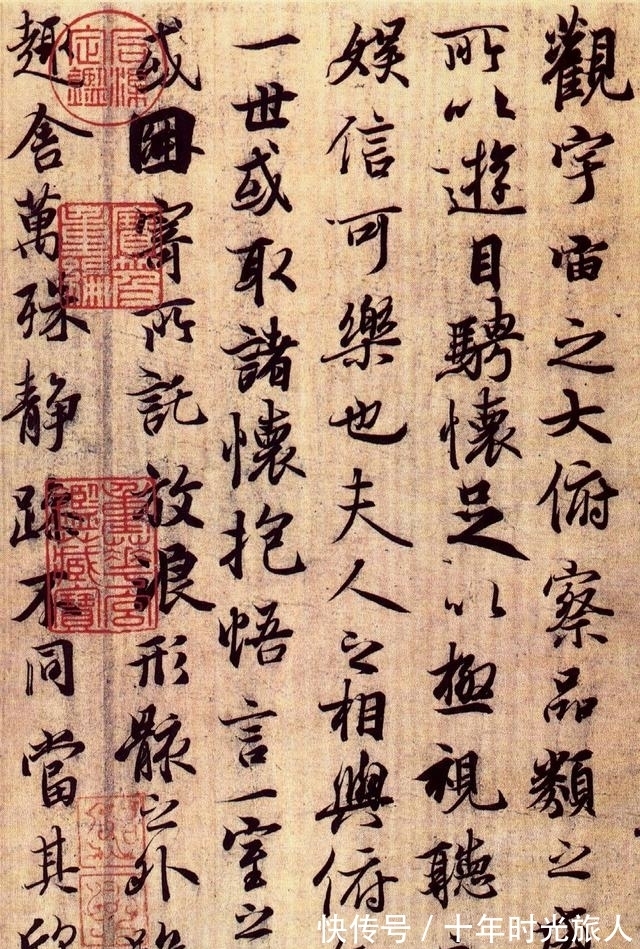 觀宇宙之大俯察品類之
所以遊目騁懷足以極視聽
娛信可樂也夫人之相與俯
一世或取諸懷抱悟言一室之
或因寄所託放浪形骸之外
趣舍萬殊静躁不同當其
快传号 / 十年时光旅人